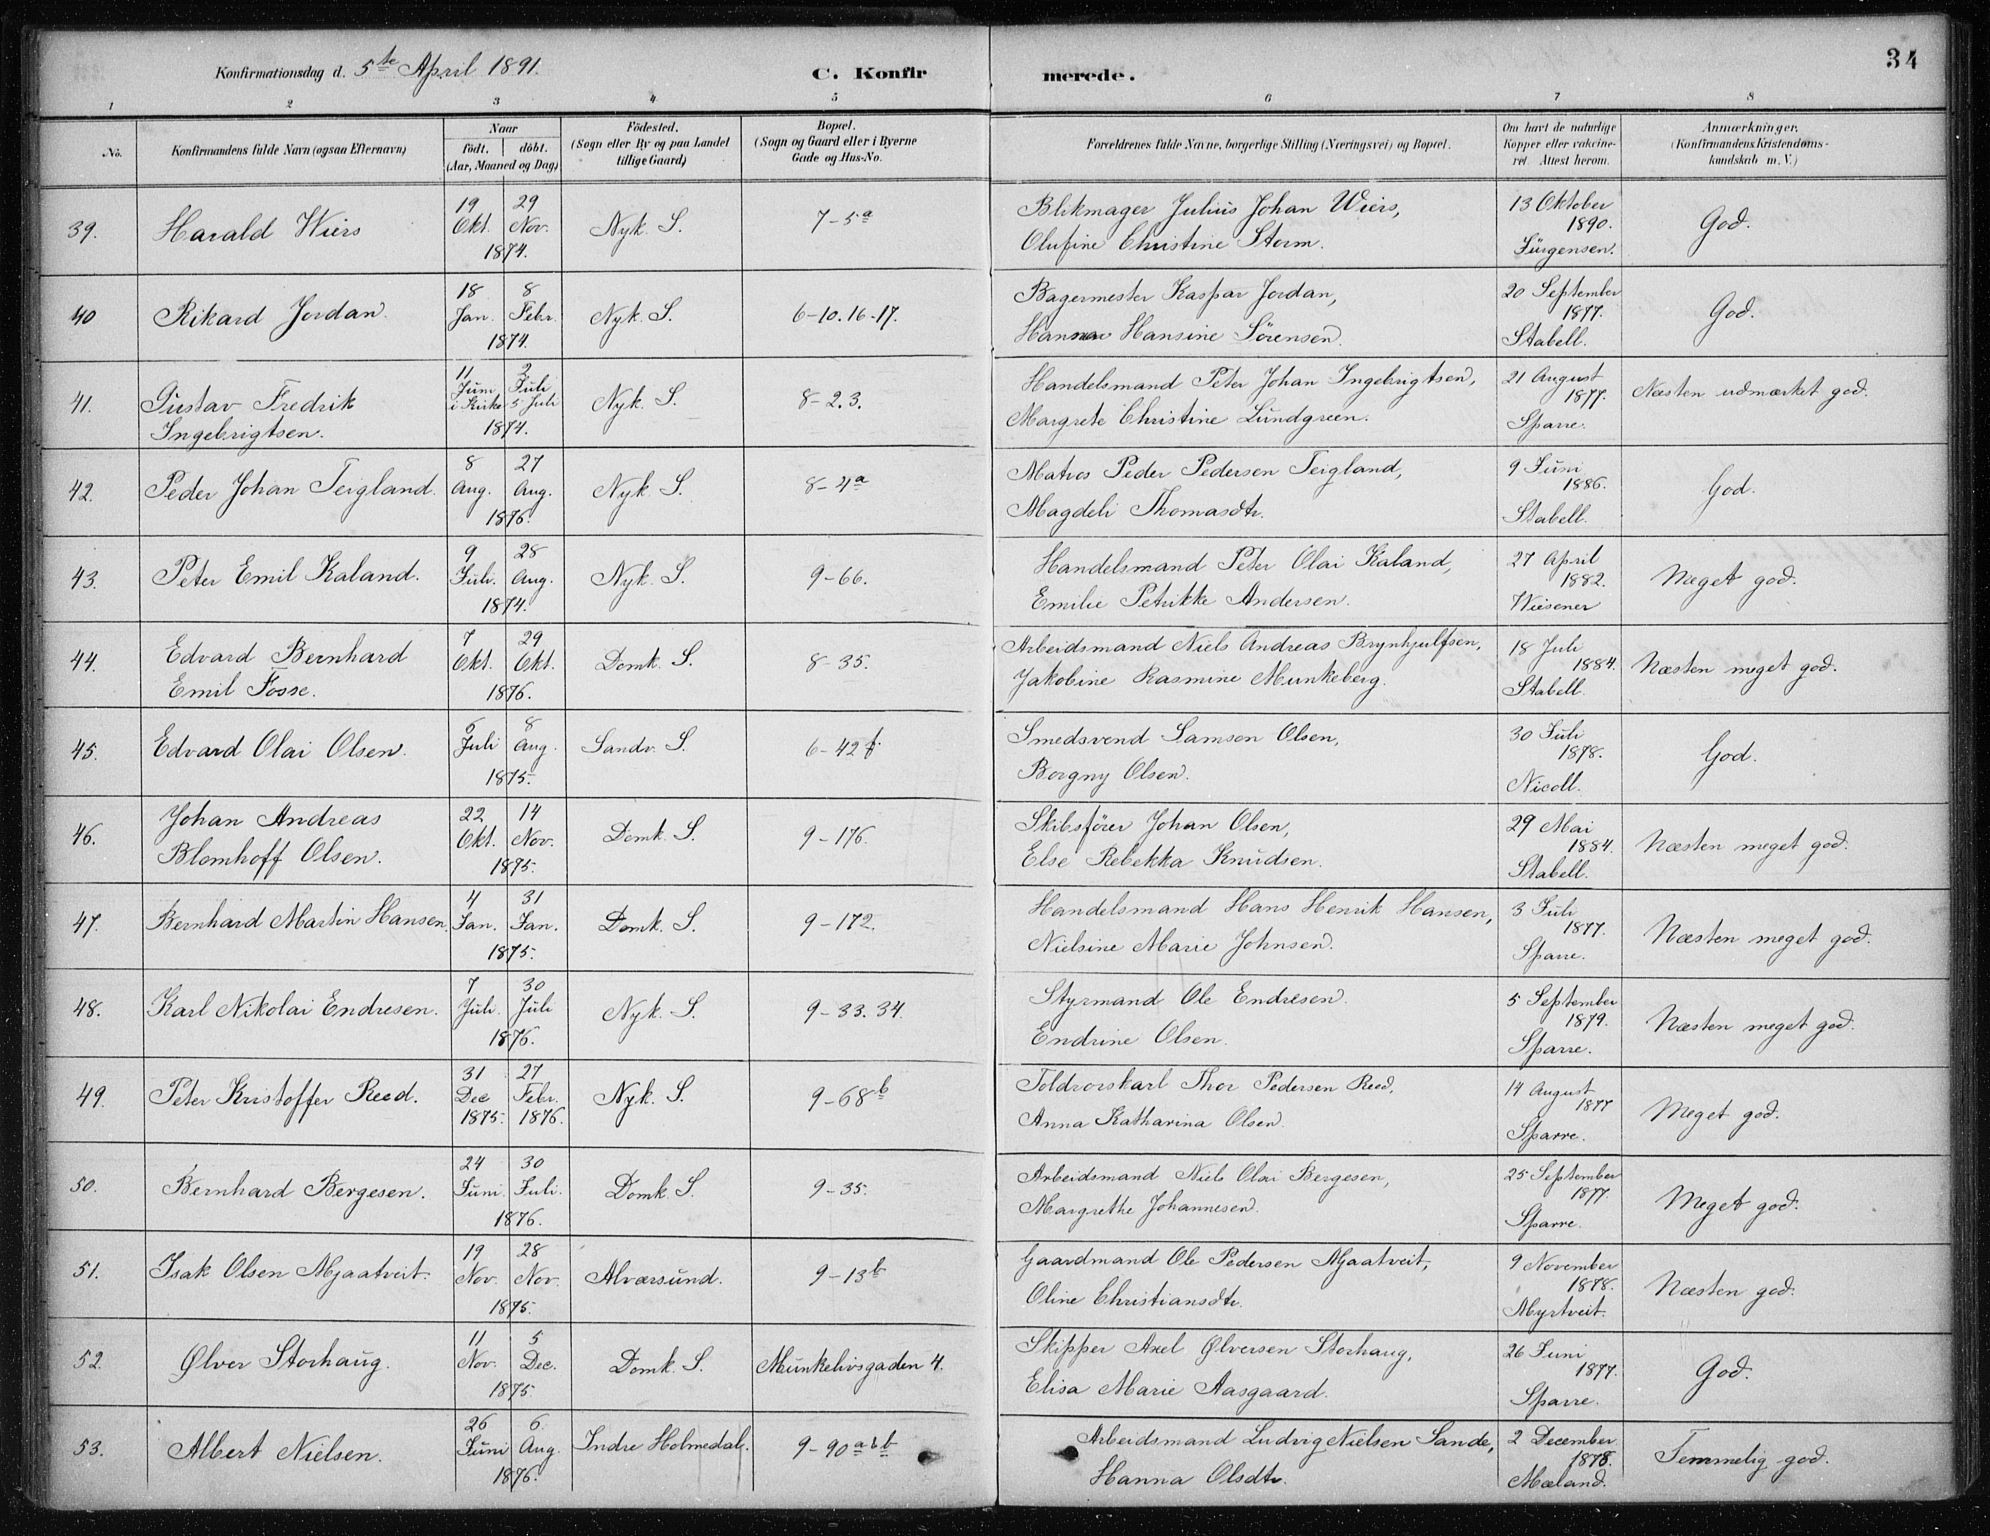 34
Konfirmationsdag d. 5te April 1891.
C. Konfirmerede.
1 2 3 4 5 6 7 8
No.
Konfirmandens fulde Navn (ogsaa Efternavn)
Naar
födt. döbt.
(Aar, Maaned og Dag)
Födested.
(Sogn eller By og paa Landet
tillige Gaard)
Bopæl.
(Sogn og Gaard eller i Byerne
Gade og Hus-No.
Forældrenes fulde Navne, borgerlige Stilling (Næringsvei) og Bopæl.
Om havt de naturlige
Kopper eller vakcine-
ret. Attest herom.
Anmærkninger.
(Konfirmandens Kristendoms-
kundskab m. V.)
39. Harald Wiers
19 Okt. 29 Nov. 1874.
Nyk. S.
7-5a
Blikmager Julius Johan Wiers,
Olufine Christine Storm.
13 Oktober
1890.
Jürgensen.
God.
40 Rikard Jordan.
18 Jan. 8 Febr. 1874.
Nyk. S.
6-10.16-17.
Bagermester Kaspar Jordan,
Hanna Hansine Sörensen.
20 September
1877.
Stabell.
God.
41. Gustav Fredrik
Ingebrigtsen.
11 Juni i Kirke 2 Juli 5 Juli 1874.
Nyk. S.
8-2.3.
Handelsmand Peter Johan Ingebrigtsen,
Margrete Christine Lundgreen.
21 August
1877.
Sparre.
Næsten udmærket god.
42. Peder Johan Teigland.
8 Aug. 27 Aug. 1876.
Nyk. S.
8-4a
Matros Peder Pedersen Teigland,
Magdeli Thomasdtr.
9 Juni
1886.
Stabell.
God.
43. Peter Emil Kaland.
9 Juli. 28 Aug. 1874.
Nyk. S.
9-66.
Handelsmand Peter Olai Kaland,
Emilie Petrikke Andersen.
27 April
1882.
Wiesener
Meget god.
44. Edvard Bernhard
Emil Fosse.
7 Okt. 29 Okt. 1876.
Domk. S.
8-35.
Arbeidsmand Niels Andreas Brynhjulfsen,
Jakobine Rasmine Munkeberg.
18 Juli
1884.
Stabell.
Næsten meget god.
45. Edvard Olai Olsen.
6 Juli 8 Aug. 1875.
Sandv. S.
6-42f.
Smedsvend Samson Olsen,
Borgny Olsen.
30 Juli
1878.
Nicoll.
God.
46. Johan Andreas
Blomhoff Olsen.
22 Okt. 14 Nov. 1875.
Domk. S.
9-176.
Skibsfører Johan Olsen,
Else Rebekka Knudsen.
29 Mai
1884.
Stabell.
Næsten meget god.
47. Bernhard Martin Hansen.
4 Jan. 31 Jan. 1875.
Domk. S.
9-172.
Handelsmand Hans Henrik Hansen,
Nielsine Marie Johnsen.
3 Juli
1877.
Sparre.
Næsten meget god.
48. Karl Nikolai Endresen.
7 Juli. 30 Juli 1876.
Nyk. S.
9-33.34.
Styrmand Ole Endresen.
Endrine Olsen.
5 September
1879.
Sparre.
Næsten meget god.
49. Peter Kristoffer Reed.
31 Dec 1875. 27 Febr. 1876.
Nyk. S.
9-68b
Toldrorskarl Thor Pedersen Reed,
Anna Katharina Olsen.
14 August
1877
Sparre.
Meget god.
50. Bernhard Bergesen.
24 Juni. 30 Juli. 1876.
Domk. S.
9-35.
Arbeidsmand Niels Olai Bergesen,
Margrethe Johannesen.
25 September
1877.
Sparre.
Meget god.
51. Isak Olsen Mjaatveit.
19 Nov. 28 Nov. 1875.
Alværsund.
9-13b
Gaardmand Ole Pedersen Mjaatveit,
Oline Christiansdtr.
9 November
1878.
Myrtveit.
Næsten god.
52. Ølver Storhaug.
11 Nov. 5 Dec. 1875.
Domk. S.
Munkelivsgaden 4.
Skipper Axel Ølversen Storhaug,
Elisa Marie Aasgaard.
26 Juni
1877.
Sparre.
God.
53. Albert Nielsen.
26 Juni 6 Aug. 1876.
Indre Holmedal.
9-90abb
Arbeidsmand Ludvig Nielsen Sande,
Hanna Olsdtr.
2 December
1878.
Mæland.
Temmelig god.